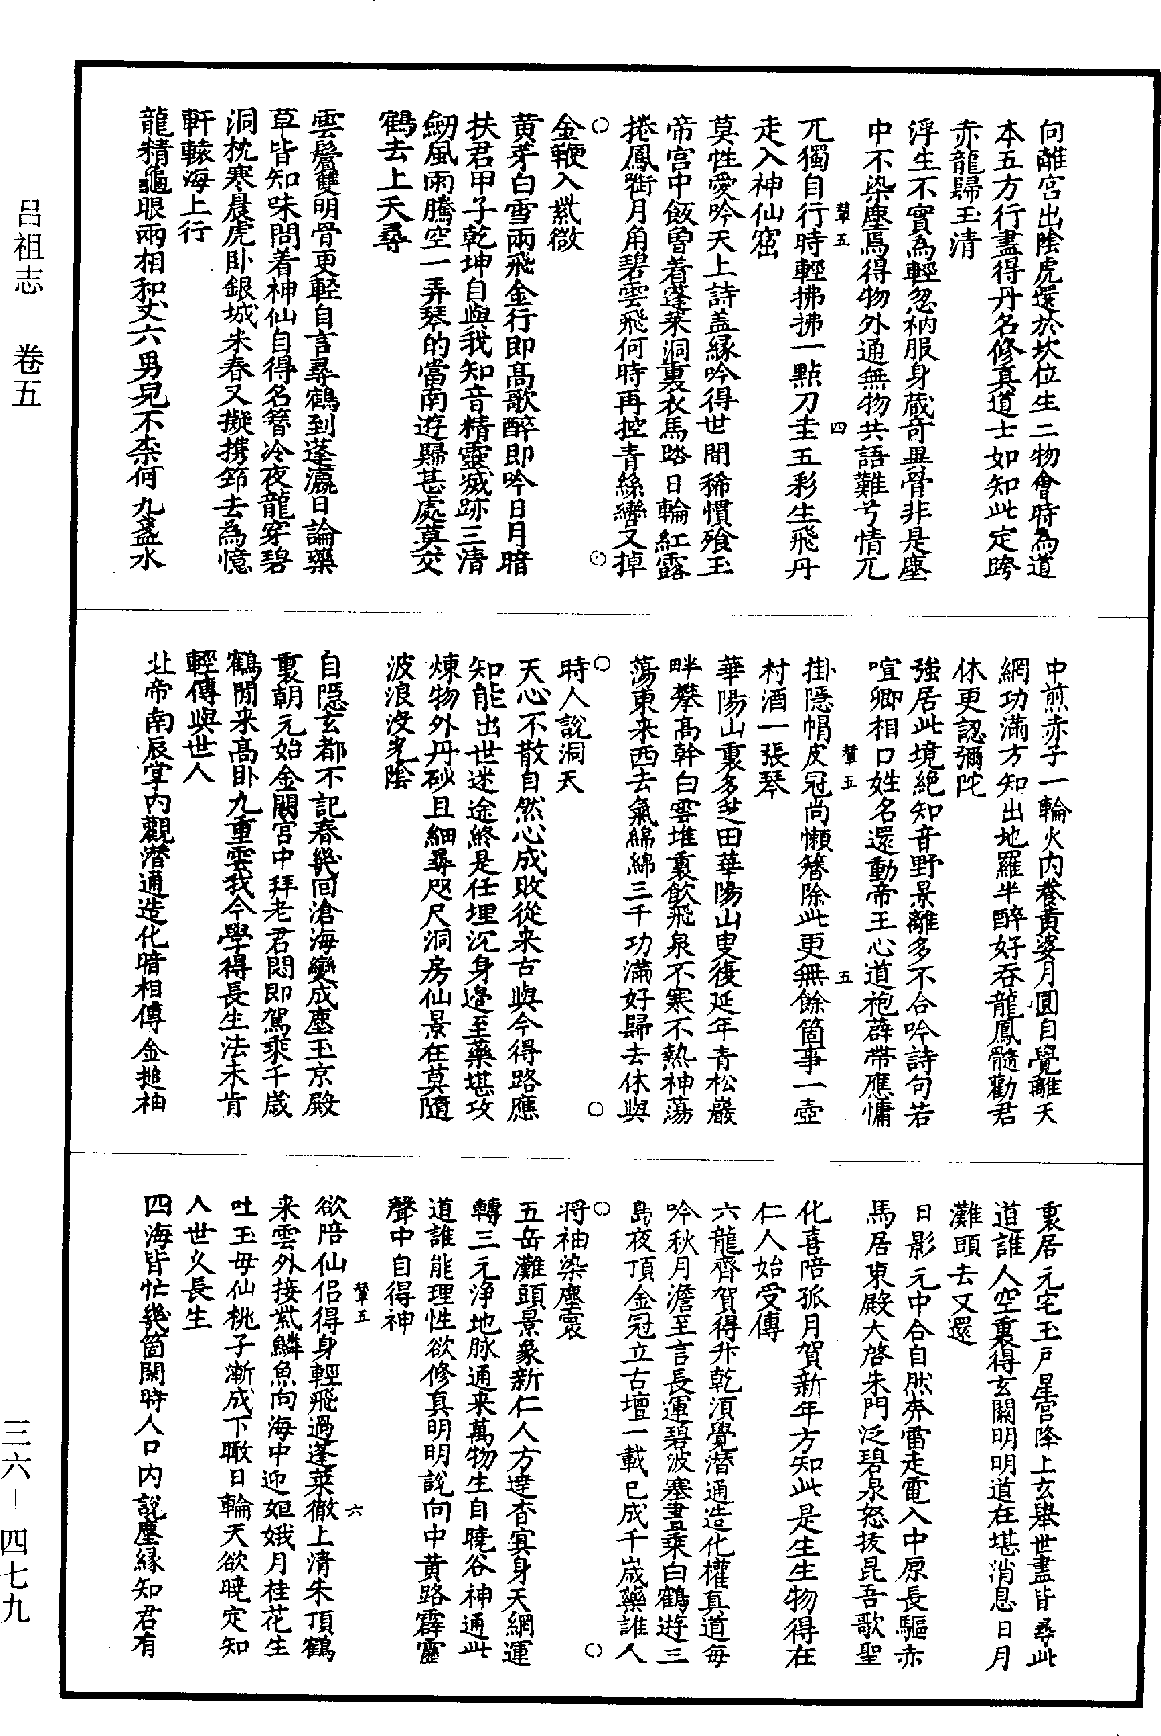 呂祖志　卷五
三六—四七九
向離宮出陰虎還於坎位生二物會時為道
本五方行盡得丹名修真道士如知此定跨
赤龍歸玉清
浮生不實為輕忽衲服身藏奇異骨非是塵
中不染塵焉得物外通無物共語難兮情兀
兀獨自行時輕拂拂一點刀圭五彩生飛丹
走入神仙窟
莫性愛吟天上詩蓋緣吟得世間稀慣飡玉
帝宮中飯曾着蓬萊洞裏衣馬踏日輪紅露
捲鳳銜月角碧雲飛何時再控青絲轡又掉
金鞭入紫微
黃芽白雪兩飛金行即高歌醉即吟日月暗
扶君甲子乾坤自與我知音精靈滅跡三清
劒風雨騰空一弄琴的當南遊歸甚處莫交
鶴去上天尋
雲鬢雙明骨更輕自言尋鶴到蓬瀛日論藥
草皆知味問着神仙自得名簪冷夜龍穿碧
洞枕寒晨虎卧銀城来春又擬携筇去為憶
軒轅海上行
龍精龜眼兩相和丈六男兒不柰何九盞水
中煎赤子一輪火內養黃婆月圓自覺離天
網功滿方知出地羅半醉好吞龍鳳髓勸君
休更認彌陀
強居此境絕知音野景雖多不合吟詩句若
喧卿相口姓名還動帝王心道袍薜帶應慵
掛隱帽皮冠尚懶簪除此更無餘箇事一壺
村酒一張琴
華陽山裏多芝田華陽山叟復延年青松巖
畔攀高幹白雲堆裏飲飛泉不寒不熱神蕩
蕩東来西去氣綿綿三千功滿好歸去休與
時人說洞天
天心不散自然心成敗從来古與今得路應
知能出世迷途終是任埋沉身邊至藥堪攻
煉物外丹砂且細尋咫尺洞房仙景在莫隨
波浪沒光陰
自隱玄都不記春幾回滄海變成塵玉京殿
裏朝元始金闕宮中拜老君悶即駕乘千歲
鶴閒来高卧九重雲我今學得長生法未肯
輕傳與世人
北帝南辰掌內觀潛通造化暗相傳金搥袖
裏居元宅玉戶星宮降上玄舉世盡皆尋此
道誰人空裏得玄關明明道在堪消息日月
灘頭去又還
日影元中合自然奔雷走電入中原長驅赤
馬居東殿大啓朱門泛碧泉怒拔昆吾歌聖
化喜陪孤月賀新年方知此是生生物得在
仁人始受傳
六龍齊賀得升乾須覺潛通造化權真道每
吟秋月澹至言長運碧波寒晝乘白鶴遊三
島夜頂金冠立古壇一載已成千歲藥誰人
將袖染塵寰
五岳灘頭景象新仁人方達杳冥身天網運
轉三元淨地脉通来萬物生自曉谷神通此
道誰能理性欲修真明明說向中黃路霹靂
聲中自得神
欲陪仙侶得身輕飛過蓬萊徹上清朱頂鶴
来雲外接紫鱗魚向海中迎姮娥月桂花生
吐王母仙桃子漸成下瞰日輪天欲曉定知
人世久長生
四海皆忙幾箇閑時人口內說塵緣知君有